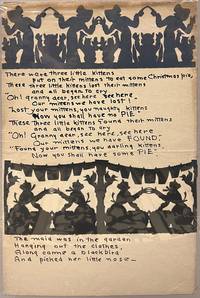 There were three little kittens
Put on their mittens to eat some Christmas pie,
These three little kittens lost their mittens
and all began to cry
"Oh! granny dear, see here, see here
Our mittens we have lost"!
"Lost your mittens, you naughty kittens
Now you shall have no PIE"
These Three little kittens Found their mittens
and all began to cry
"Oh! Granny dear, see here, see here
Our mittens we have FOUND."
"Found your mittens, you darling kittens
Now you shall have some PIE."
The maid was in the garden
Hanging out the clothes,
Along came a blackbird
And picked her little nose —